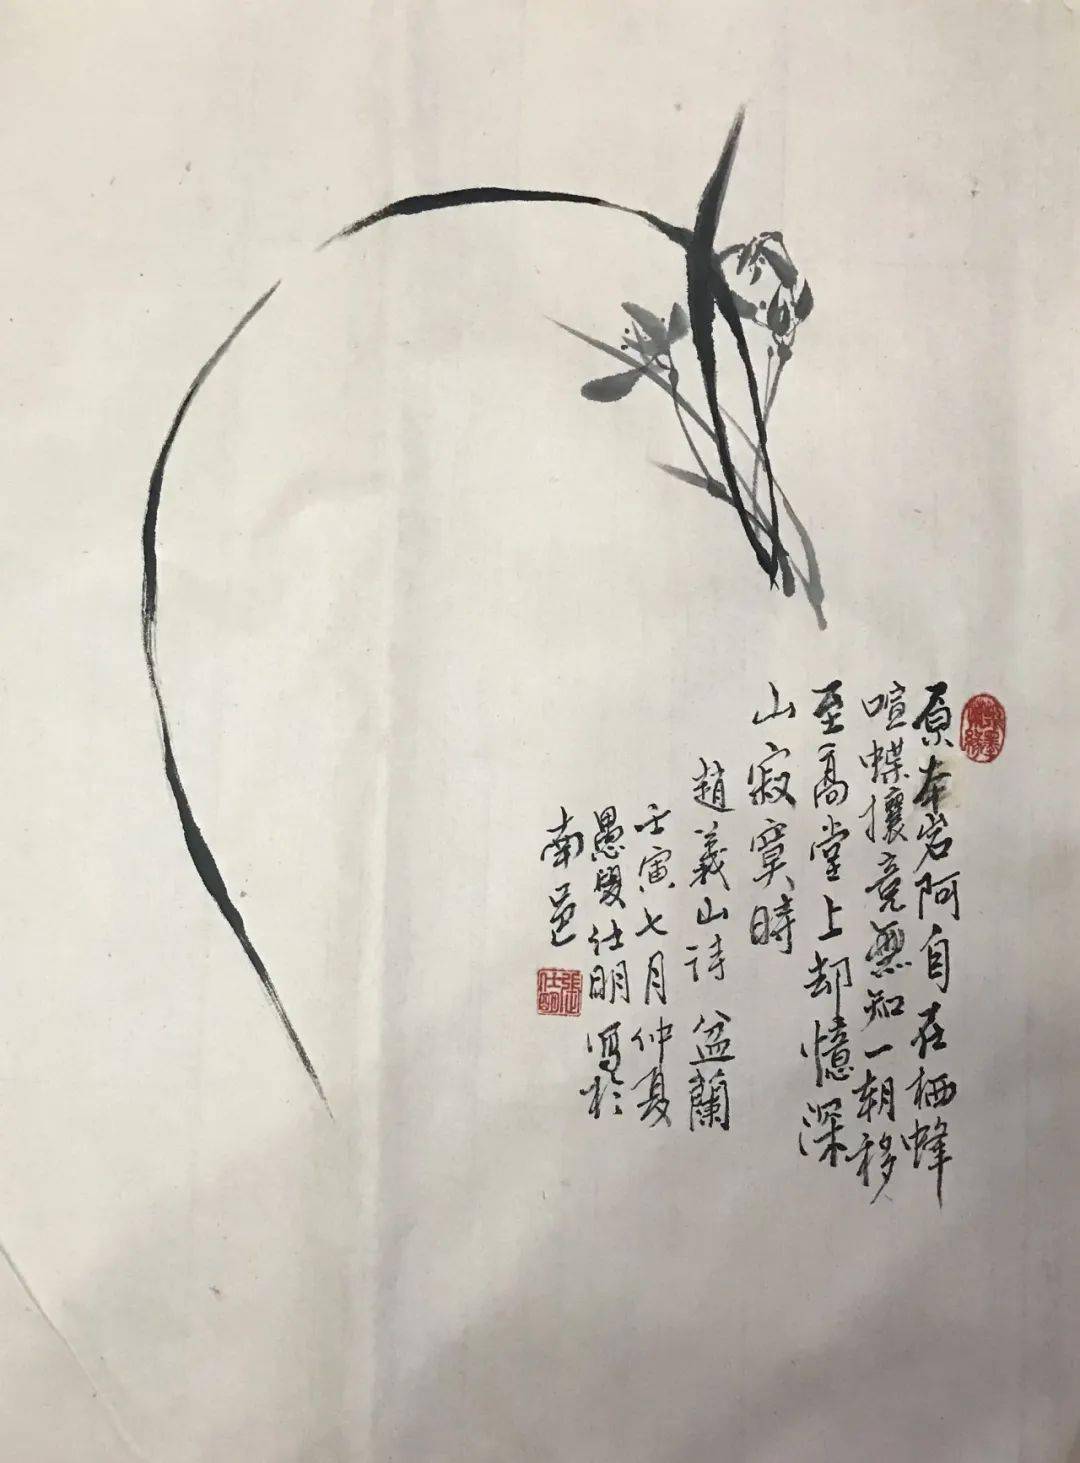 原本岩阿自在栖蜂
喧蝶攘竟無知一朝移
至高堂上却憶深
山寂寞時
趙義山詩 盆蘭
壬寅七月仲夏
愚叟仕明寫於
南邑
張仕明